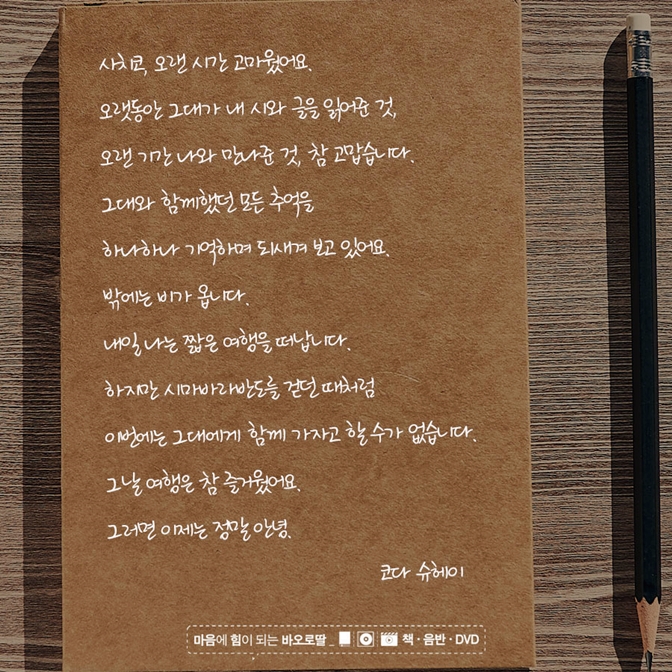 사치코, 오랜 시간 고마웠어요.
오랫동안 그대가 내 시와 글을 읽어준 것,
오랜 기간 나와 만나준 것, 참 고맙습니다.
그대와 함께했던 모든 추억을
하나하나 기억하며 되새겨 보고 있어요.
밖에는 비가 옵니다.
내일 나는 짧은 여행을 떠납니다.
하지만 시마바라반도를 걷던 때처럼
이번에는 그대에게 함께 가자고 할 수가 없습니다.
그날 여행은 참 즐거웠어요.
그러면 이제는 정말 안녕.
코다 슈헤이
마음에 힘이 되는 바오로딸_ 책·음반·DVD